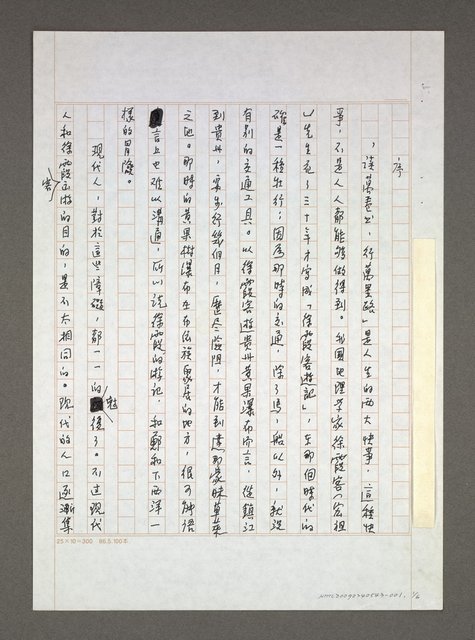 序
，讀萬卷書，行萬里路，是人生的兩大快事，這種快
事，不是人人都能夠做得到。我國地理學家徐霞客（宏祖
）先生花了三十年才寫成「徐霞客遊記」，在那個時代的
確是一種壯行；因為那時的交通，除了馬，船以外，就沒
有別的交通工具。以徐霞客遊貴州黃果瀑布而言，從鎮江
到貴州，要步行幾個月，歷盡險阻，才能到達那蒙昧草萊
之地。那時的黃果樹瀑布在布依族聚居的地方，很可能語
言上也難以溝通，所以說徐霞的游記，和鄭和下西洋一
樣的冒險。
現代人，對於這些障礙，都一一的克復了。不過現代
人和徐霞客出遊的目的，是不大相同的。現代的人口逐漸集
25×10=300 86.5.100本